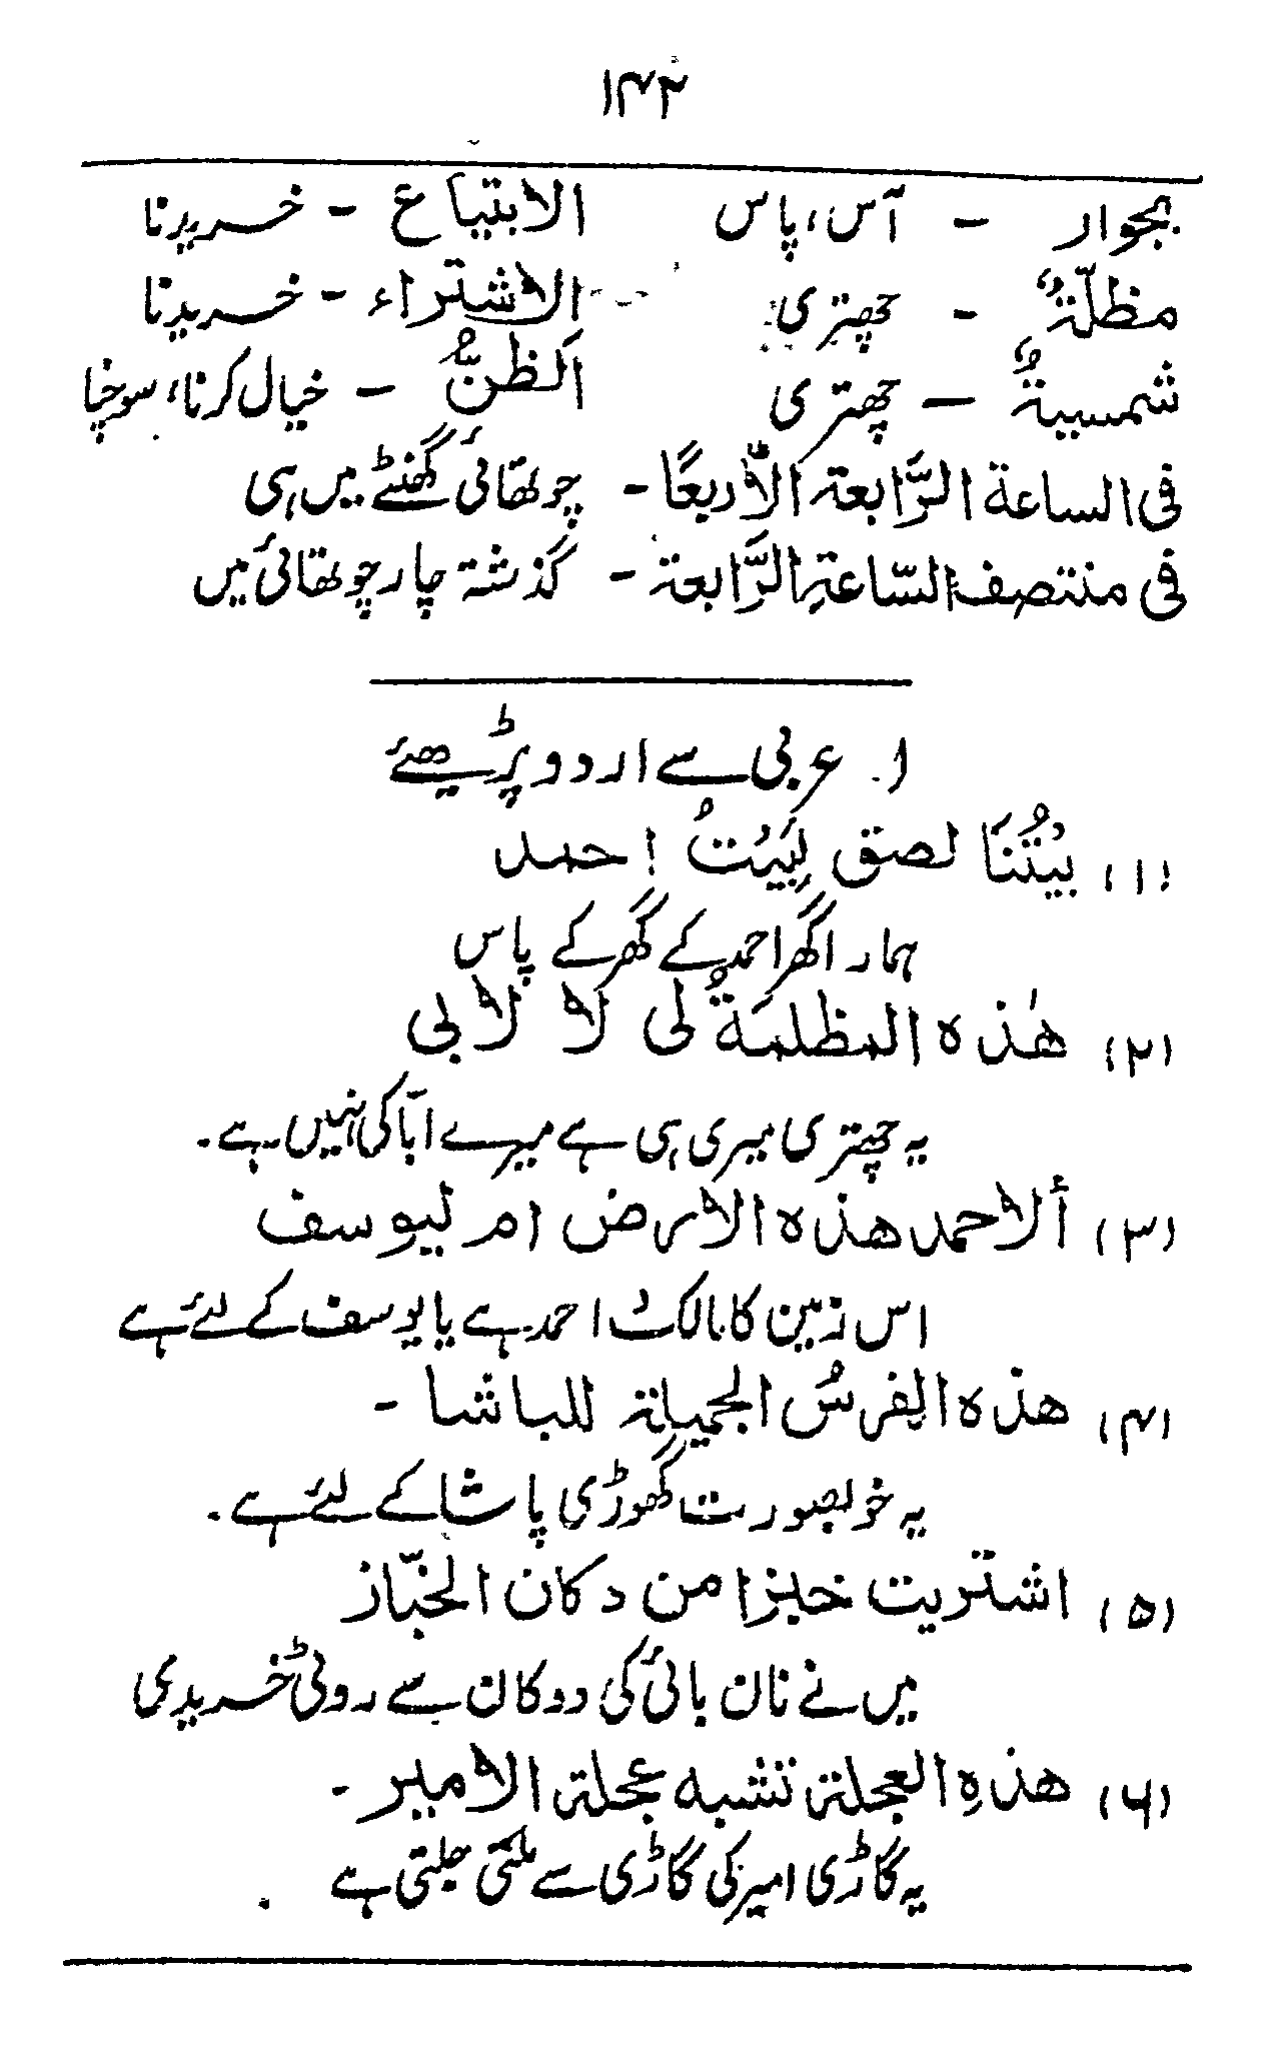 ۱۴۲
بجوار - آس، پاس الابتیاع - خریدنا
مظلّۃٌ - چھتری الاشتراء - خریدنا
شمسیۃٌ - چھتری اَلظنُّ - خیال کرنا، سوچنا
فی الساعۃ الرَّابعۃ الّاربعًا - چوتھائی گھنٹے میں ہی
فی منتصف السّاعۃِ الرَّابعۃ - گذشتہ چار چوتھائی میں
ا. عربی سے اردو پڑھیئے
(۱) بیْتُنَا لصق بِبَیْتُ احمد
ہمارا گھر احمد کے گھر کے پاس
(۲) ھٰذہ المظلمَۃُ لی لا لابی
یہ چھتری میری ہی ہے میرے ابّا کی نہیں ہے۔
(۳) ألاحمد ھذہ الارض ام لیوسف
اس زمین کا مالک احمد ہے یا یوسف کے لئے ہے
(۴) ھذہ الفرسُ الجمیلۃ للباشا -
یہ خوبصورت گھوڑی پاشا کے لئے ہے۔
(۵) اشتریت خبزا من دکان الخبّاز
میں نے نان بائی کی دوکان سے روٹی خریدی
(۶) ھذہِ العجلۃ تشبہ عجلۃ الامیر -
یہ گاڑی امیر کی گاڑی سے ملتی جلتی ہے